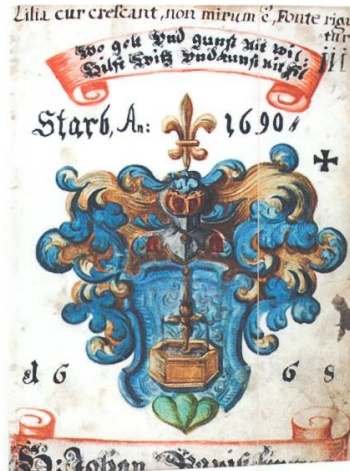 Lilia cur crescant, non mirum ē, Fonte riga
tur
Wo gelt Vnd gunst nit wil,
Hilft Witz Vnd kunst nit fil
III
Starb, An: 1690
A 6 6 8
H: Johan